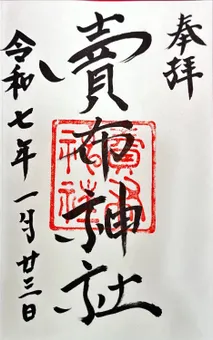 奉拝
賣布神社
賣布神社
令和七年 一月廿三日